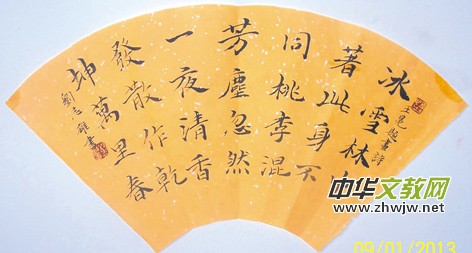 冰雪林中
王冕題畫詩
著此身不
同桃李混
芳塵忽然
一夜清香
發散作乾
坤萬里春
劉志雄書
中华文教网
www.zhwjw.net
09/01/2013